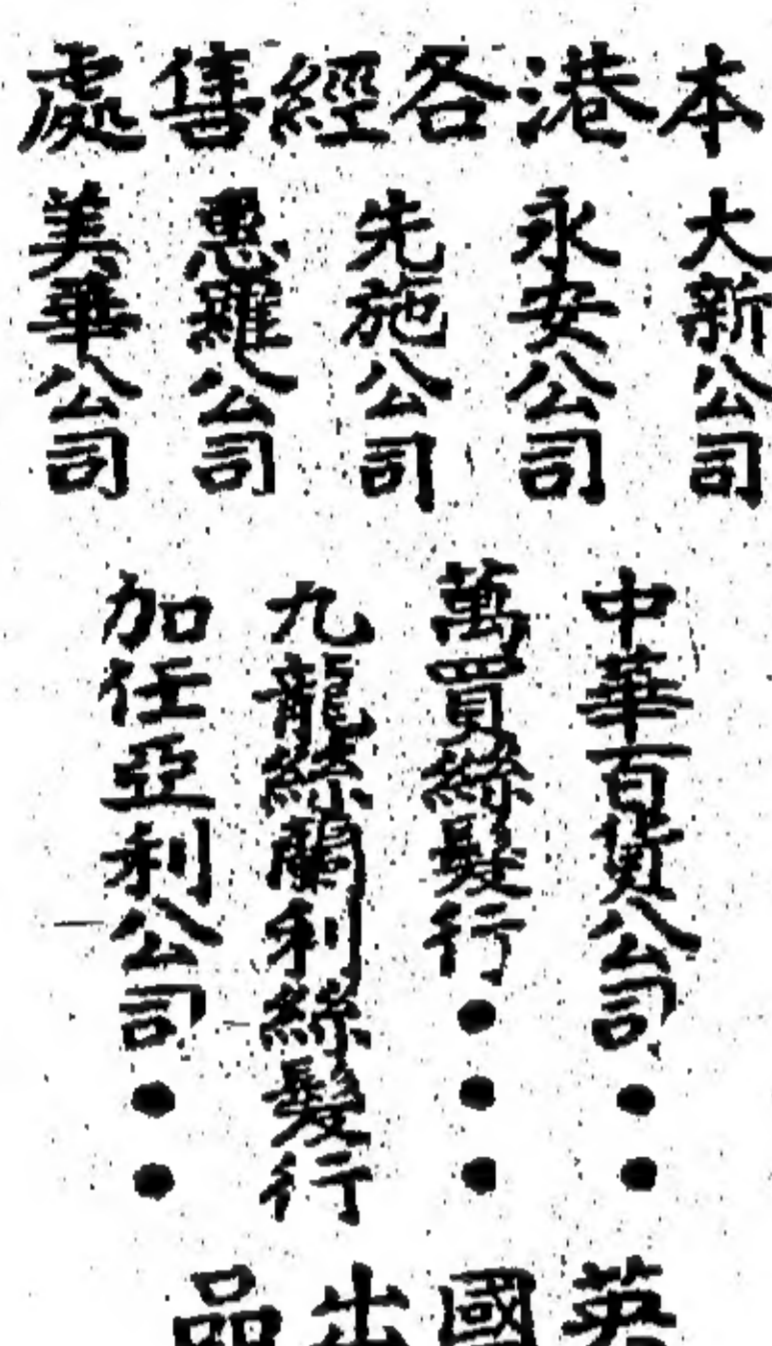 本港各經售處
大新公司
永安公司
先施公司
惠羅公司
美華公司
中華百貨公司••
萬買絲髮行•••
九龍絲蘭利絲髮行
加任亞利公司••
英國出品